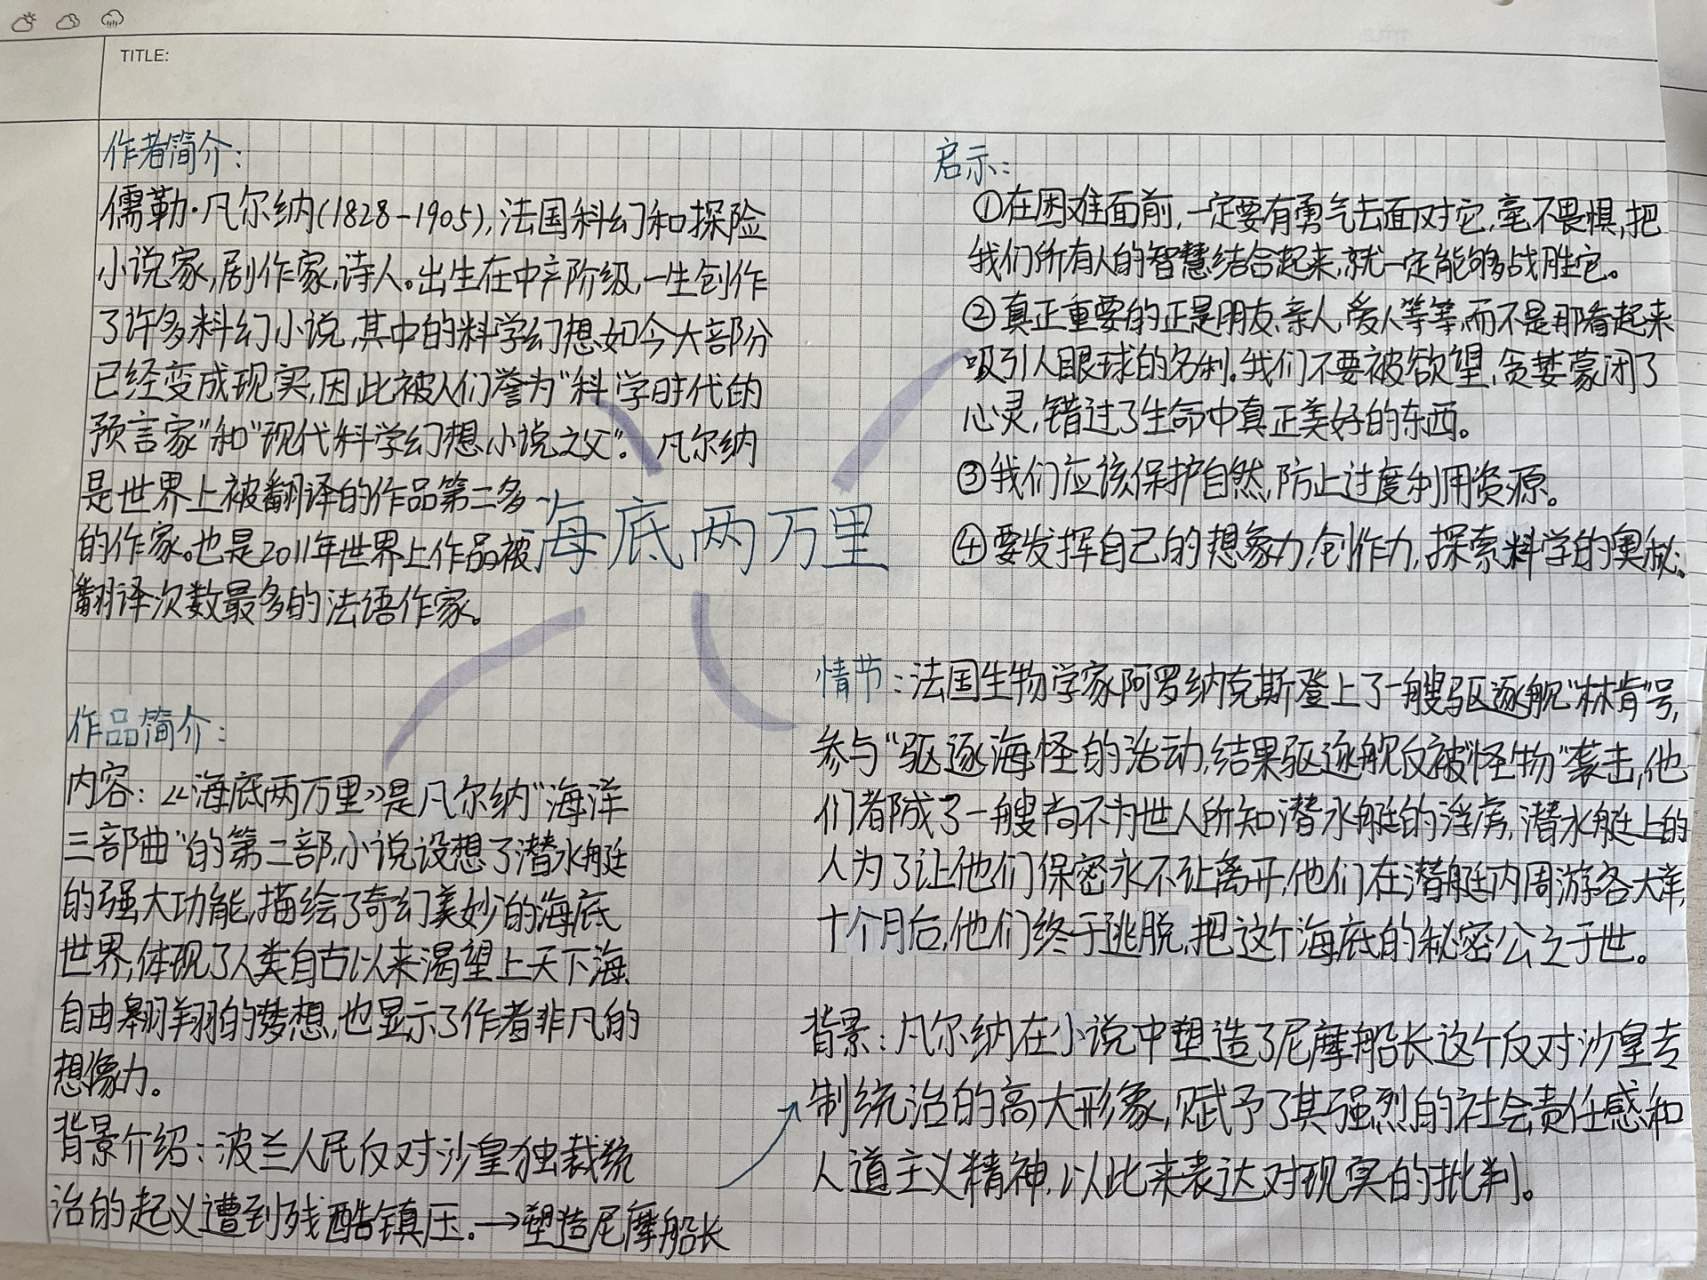 TITLE:
作者简介:
儒勒·凡尔纳(1828-1905),法国科幻和探险
小说家,剧作家,诗人。出生在中产阶级,一生创作
了许多科幻小说,其中的科学幻想如今大部分
已经变成现实,因此被人们誉为“科学时代的
预言家”和“现代科学幻想小说之父”。凡尔纳
是世界上被翻译的作品第二多
的作家。也是2011年世界上作品被
翻译次数最多的法语作家。
海底两万里
作品简介:
内容:《海底两万里》是凡尔纳“海洋
三部曲”的第二部,小说设想了潜水艇
的强大功能,描绘了奇幻美妙的海底
世界,体现了人类自古以来渴望上天下海、
自由翱翔的梦想,也显示了作者非凡的
想像力。
背景介绍:波兰人民反对沙皇独裁统
治的起义遭到残酷镇压.→塑造尼摩船长
启示:
①在困难面前,一定要有勇气去面对它,毫不畏惧,把
我们所有人的智慧结合起来,就一定能够战胜它。
②真正重要的正是朋友、亲人、爱人等等,而不是那看起来
吸引人眼球的名利。我们不要被欲望、贪婪蒙闭了
心灵,错过了生命中真正美好的东西。
③我们应该保护自然,防止过度利用资源。
④要发挥自己的想象力,创作力,探索科学的奥秘。
情节:法国生物学家阿罗纳克斯登上了一艘驱逐舰“林肯”号,
参与“驱逐海怪的活动,结果驱逐舰反被“怪物”袭击,他
们都成了一艘尚不为世人所知潜水艇的浮虏,潜水艇上的
人为了让他们保密永不让离开,他们在潜艇内周游各大洋,
十个月后,他们终于逃脱,把这个海底的秘密公之于世。
背景:凡尔纳在小说中塑造了尼摩船长这个反对沙皇专
制统治的高大形象,赋予了其强烈的社会责任感和
人道主义精神,以此来表达对现实的批判。